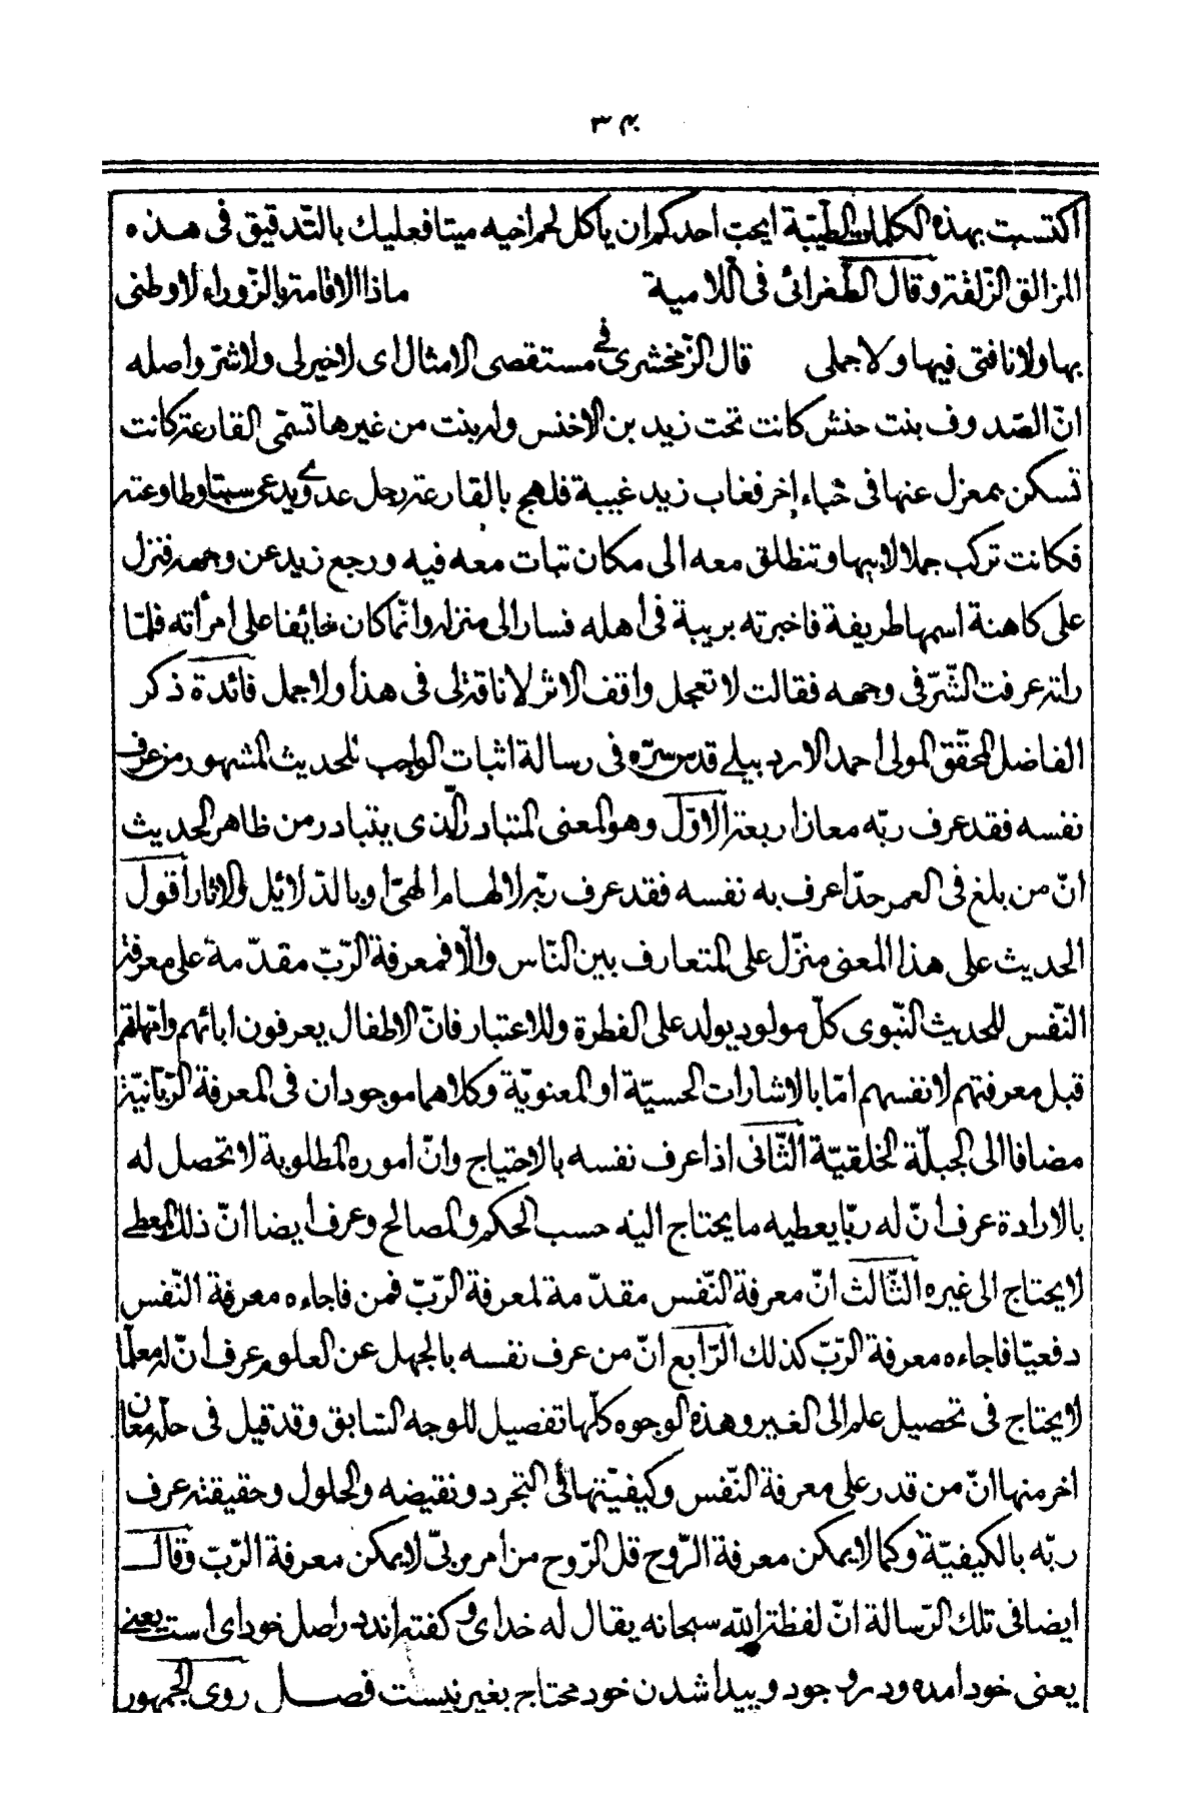 ٣٤
اكتسبت بهذه الكلمات الطيّبة ايحبّ احدكم ان ياكل لحم اخيه ميتا فعليك بالتّدقيق فى هذه
المزالق الزّلقة وقال الطّغرائى فى اللّامية ماذا الاقامة بالزّوراء لا وطنى
بها ولا ناقتى فيها ولا جملى قال الزّمخشرى فى مستقصى الامثال اى لا خير لى ولا شرّ واصله
انّ الصّدوف بنت حنش كانت تحت زيد بن الاخنس وله بنت من غيرها تسمّى القارعة كانت
تسكن بمعزل عنها فى خباء اخر فغاب زيد غيبة فلهج بالقارعة رجل عدوى يدعى سبتا وطاوعته
فكانت تركب جملا لابيها وتنطلق معه الى مكان تبات معه فيه ورجع زيد عن وجهه فنزل
على كاهنة اسمها طريفة فاخبرته بريبة فى اهله فسار الى منزله وانّما كان خائفا على امرأته فلمّا
راته عرفت الشّرّ فى وجهه فقالت لا تعجل واقف الاثر لا ناقة لى فى هذا ولا جمل فائدة ذكر
الفاضل المحقّق المولى احمد الاردبيلى قدس سرّه فى رسالة اثبات الواجب للحديث المشهور من عرف
نفسه فقد عرف ربّه معان اربعة الاوّل وهو المعنى المتبادر الّذى يتبادر من ظاهر الحديث
انّ من بلغ فى العمر حدّا عرف به نفسه فقد عرف ربّه لا لهاما الهيّا وبالدّلائل والاثار اقول
الحديث على هذا المعنى منزّل على المتعارف بين النّاس والّا فمعرفة الرّبّ مقدّمة على معرفة
النّفس للحديث النّبوى كلّ مولود يولد على الفطرة وللاعتبار فانّ الاطفال يعرفون ابائهم وامّهاتهم
قبل معرفتهم لانفسهم امّا بالاشارات الحسيّة او المعنويّة وكلاهما موجودان فى المعرفة الرّبّانيّة
مضافا الى الجبلّة الخلقيّة الثّانى اذا عرف نفسه بالاحتياج وانّ اموره المطلوبة لا تحصل له
بالارادة عرف انّ له ربّا يعطيه ما يحتاج اليه حسب الحكم والمصالح وعرف ايضا انّ ذلك المعطى
لا يحتاج الى غيره الثّالث انّ معرفة النّفس مقدّمة لمعرفة الرّبّ فمن فاجاءه معرفة النّفس
دفعيّا فاجاءه معرفة الرّبّ كذلك الرّابع انّ من عرف نفسه بالجهل عن العلوم عرف انّ له معلّما
لا يحتاج فى تحصيل علم الى الغير وهذه الوجوه كلّها تفصيل للوجه السّابق وقد قيل فى حلّه معان
اخر منها انّ من قدر على معرفة النّفس وكيفيّتها فى التجرد ونقيضه والحلول وحقيقته عرف
ربّه بالكيفيّة وكما لا يمكن معرفة الرّوح قل الرّوح من امر ربّى لا يمكن معرفة الرّبّ وقال
ايضا فى تلك الرّسالة انّ لفظة الله سبحانه يقال له خداى وكفته اند در اصل خوداى است يعنى
يعنى خود امده ودر وجود وپيدا شدن خود محتاج بغير نيست فصل روى الجمهور